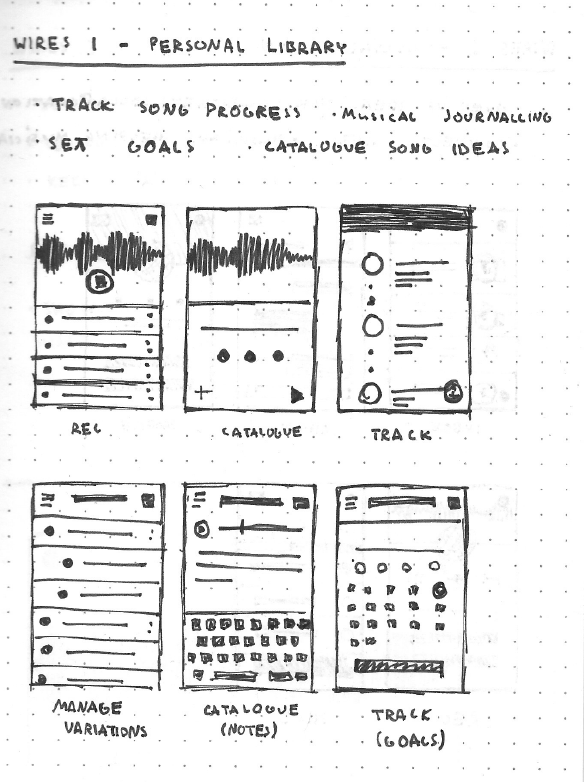 WIRES 1 - PERSONAL LIBRARY
· TRACK SONG PROGRESS · MUSICAL JOURNALLING
· SET GOALS · CATALOGUE SONG IDEAS
REC
CATALOGUE
TRACK
MANAGE
VARIATIONS
CATALOGUE
(NOTES)
TRACK
(GOALS)